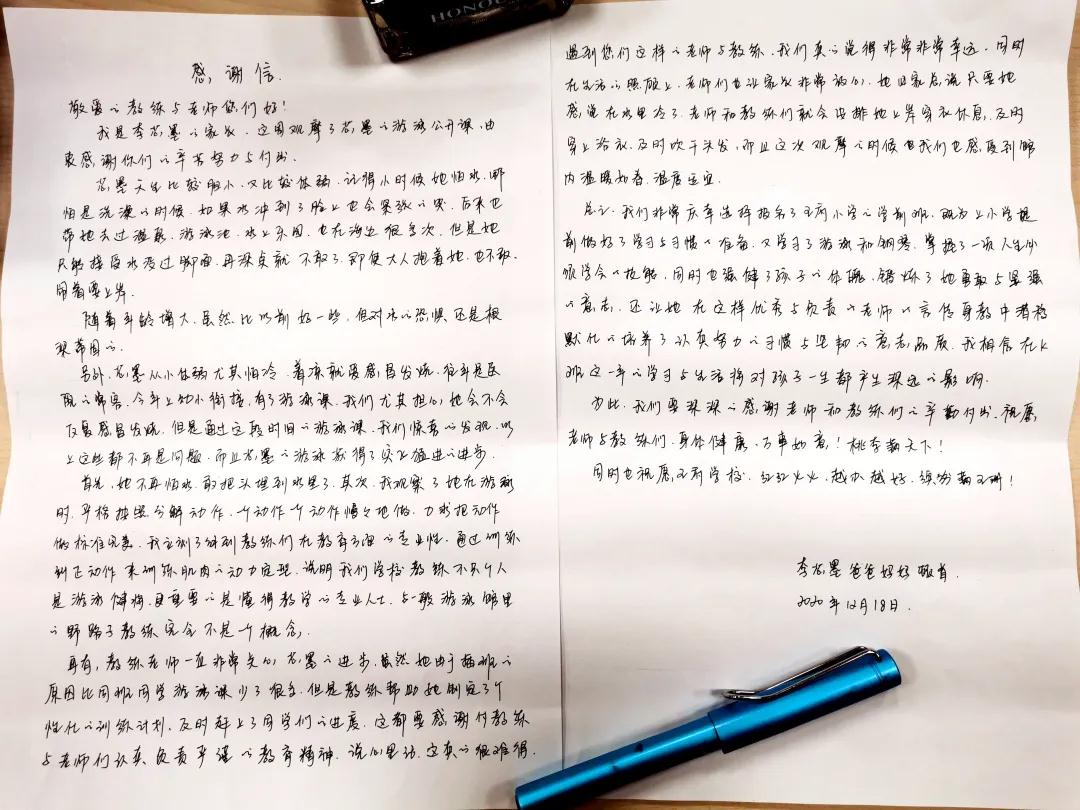 HONOR
感谢信.
敬爱的教练与老师您们好!
我是李芯墨的家长.这周观摩了芯墨的游泳公开课,由
衷感谢你们的辛苦努力与付出.
芯墨天生比较胆小.又比较体弱.记得小时候她怕水.哪
怕是洗澡的时候.如果水冲到了脸上也会紧张的哭.后来也
带她去过温泉.游泳池.水上乐园.也在海边很多次.但是她
只能接受水没过脚面.再深点就不敢了.即使大人抱着她.也不敢.
闹着要上岸.
随着年龄增大.虽然比以前好一些,但对水的恐惧还是根
深蒂固的.
另外,芯墨从小体弱尤其怕冷.着凉就爱感冒发烧.往年是医
院的常客.今年上幼小衔接,有了游泳课.我们尤其担心,她会不会
反复感冒发烧.但是通过这段时间的游泳课.我们惊喜的发现.以
上这些都不再是问题.而且芯墨的游泳获得了突飞猛进的进步.
首先,她不再怕水.敢把头埋到水里了.其次.我观察了她在游泳
时.严格按照分解动作.一个动作一个动作慢慢地做.力求把动作
做标准完美.我立刻了解到教练们在教育方面的专业性.通过训练
纠正动作来训练肌肉的动力定型.说明我们学校教练不只个人
是游泳健将.更重要的是懂得教学的专业人士.与一般游泳馆里
的野路子教练完全不是一个概念.
再有,教练老师一直非常关心芯墨的进步.虽然她由于插班的
原因比同班同学游泳课少了很多.但是教练帮助她制定了个
性化的训练计划.及时赶上了同学们的进度.这都要感谢付教练
与老师们认真负责严谨的教育精神.说心里话.这真的很难得.
遇到您们这样的老师与教练.我们真的觉得非常非常幸运.同时
在生活的照顾上.老师们也让家长非常放心.她回家总说只要她
感觉在水里冷了.老师和教练们就会安排她上岸穿衣休息.及时
穿上浴衣.及时吹干头发.而且这次观摩的时候也我们也感受到馆
内温暖如春.温度适宜.
总之.我们非常庆幸选择报名了王府小学的学前班.既为上小学提
前做好了学习与习惯的准备.又学习了游泳和钢琴.掌握了一项人生必
须学会的技能.同时也强健了孩子的体魄.锻炼了她勇敢与坚强
的意志.还让她在这样优秀与负责的老师的言传身教中潜移
默化的培养了认真努力的习惯与坚韧的意志品质.我相信在K
班这一年的学习与生活将对孩子一生都产生深远的影响.
为此.我们要深深的感谢老师和教练们的辛勤付出.祝愿
老师与教练们.身体健康.万事如意!桃李满天下!
同时也祝愿王府学校.红红火火.越办越好.缤纷满王州!
李芯墨爸爸妈妈敬首.
2020年12月18日.